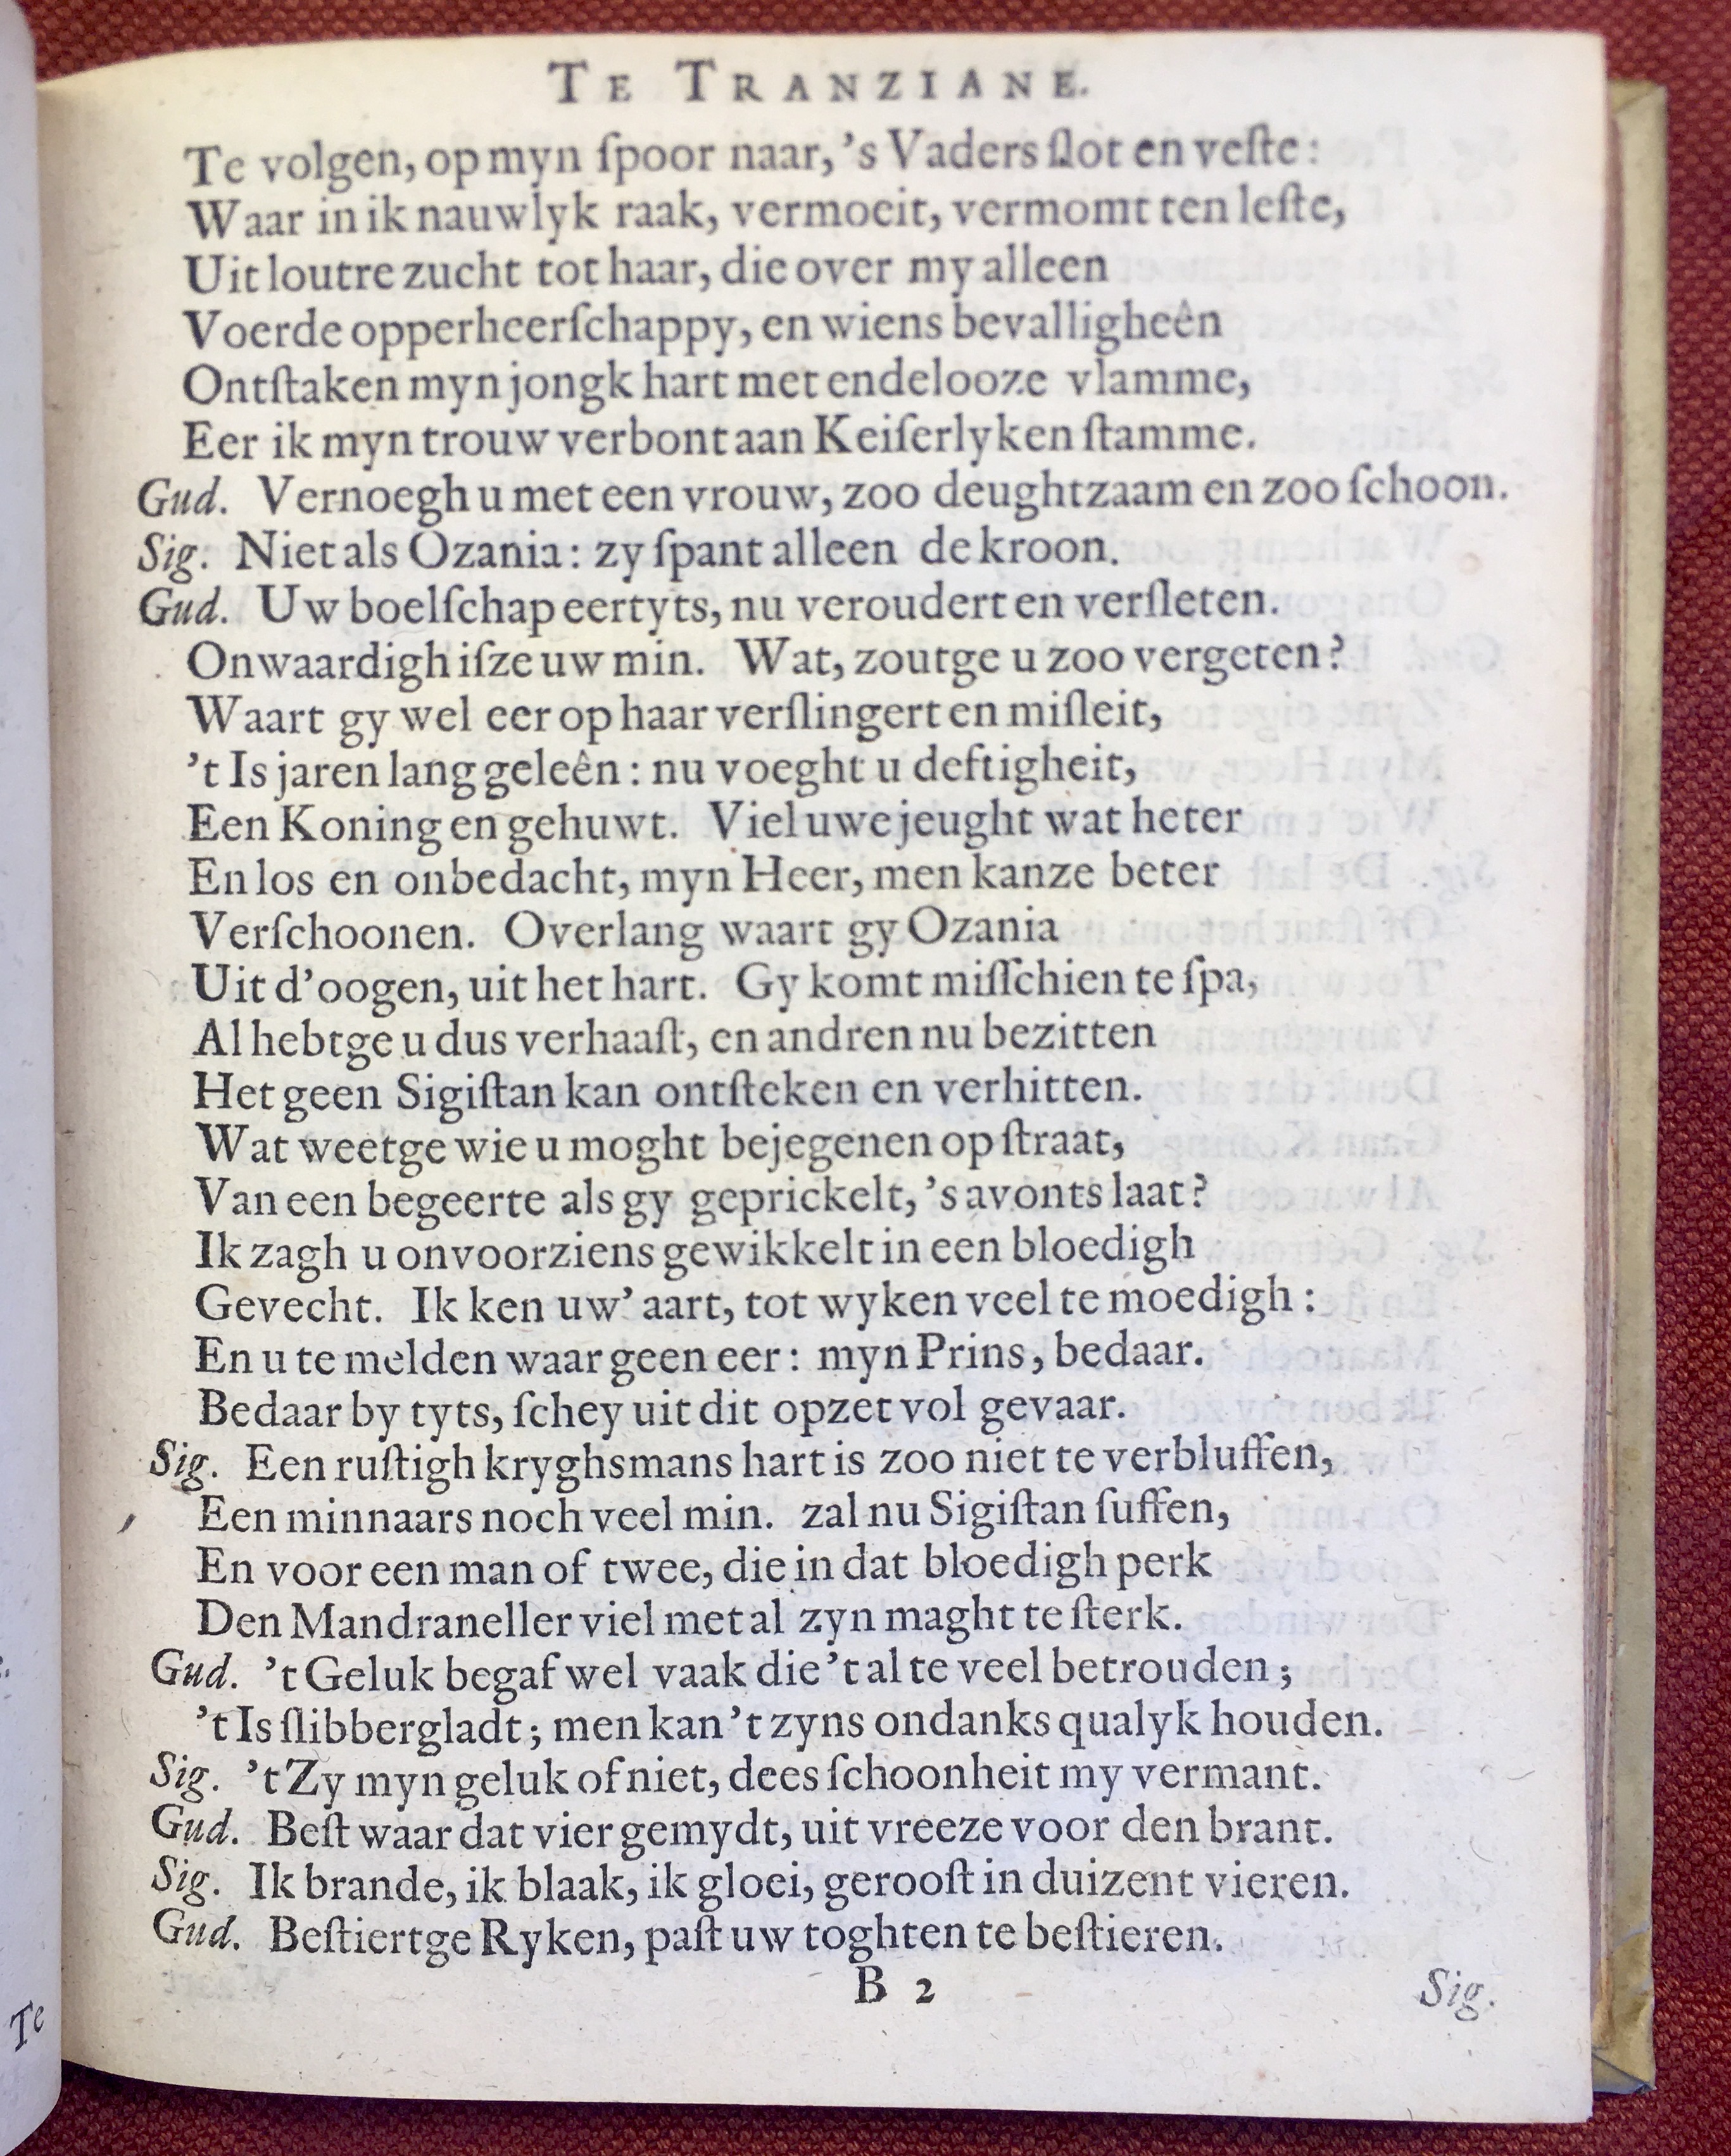 TE TRANZIANE.
Te volgen, op myn ſpoor naar, 's Vaders ſlot en veſte:
Waar in ik nauwlyk raak, vermoeit, vermomt ten leſte,
Uit loutre zucht tot haar, die over my alleen
Voerde opperheerſchappy, en wiens bevalligheên
Ontſtaken myn jongk hart met endelooze vlamme,
Eer ik myn trouw verbont aan Keiſerlyken ſtamme.
Gud. Vernoegh u met een vrouw, zoo deughtzaam en zoo ſchoon.
Sig. Niet als Ozania: zy ſpant alleen de kroon.
Gud. Uw boelſchap eertyts, nu veroudert en verſleten.
Onwaardigh iſze uw min. Wat, zoutge u zoo vergeten?
Waart gy wel eer op haar verſlingert en miſleit,
't Is jaren lang geleên: nu voeght u deftigheit,
Een Koning en gehuwt. Viel uwe jeught wat heter
En los en onbedacht, myn Heer, men kanze beter
Verſchoonen. Overlang waart gy Ozania
Uit d'oogen, uit het hart. Gy komt miſſchien te ſpa,
Al hebtge u dus verhaaſt, en andren nu bezitten
Het geen Sigiſtan kan ontſteken en verhitten.
Wat weetge wie u moght bejegenen op ſtraat,
Van een begeerte als gy geprickelt, 's avonts laat?
Ik zagh u onvoorziens gewikkelt in een bloedigh
Gevecht. Ik ken uw' aart, tot wyken veel te moedigh:
En u te melden waar geen eer: myn Prins, bedaar.
Bedaar by tyts, ſchey uit dit opzet vol gevaar.
Sig. Een ruſtigh kryghsmans hart is zoo niet te verbluffen,
Een minnaars noch veel min. zal nu Sigiſtan ſuffen,
En voor een man of twee, die in dat bloedigh perk
Den Mandraneller viel met al zyn maght te ſterk.
Gud. 't Geluk begaf wel vaak die 't al te veel betrouden;
't Is ſlibbergladt; men kan 't zyns ondanks qualyk houden.
Sig. 't Zy myn geluk of niet, dees ſchoonheit my vermant.
Gud. Beſt waar dat vier gemydt, uit vreeze voor den brant.
Sig. Ik brande, ik blaak, ik gloei, gerooſt in duizent vieren.
Gud. Beſtiertge Ryken, paſt uw toghten te beſtieren.
B 2
Sig.
Te